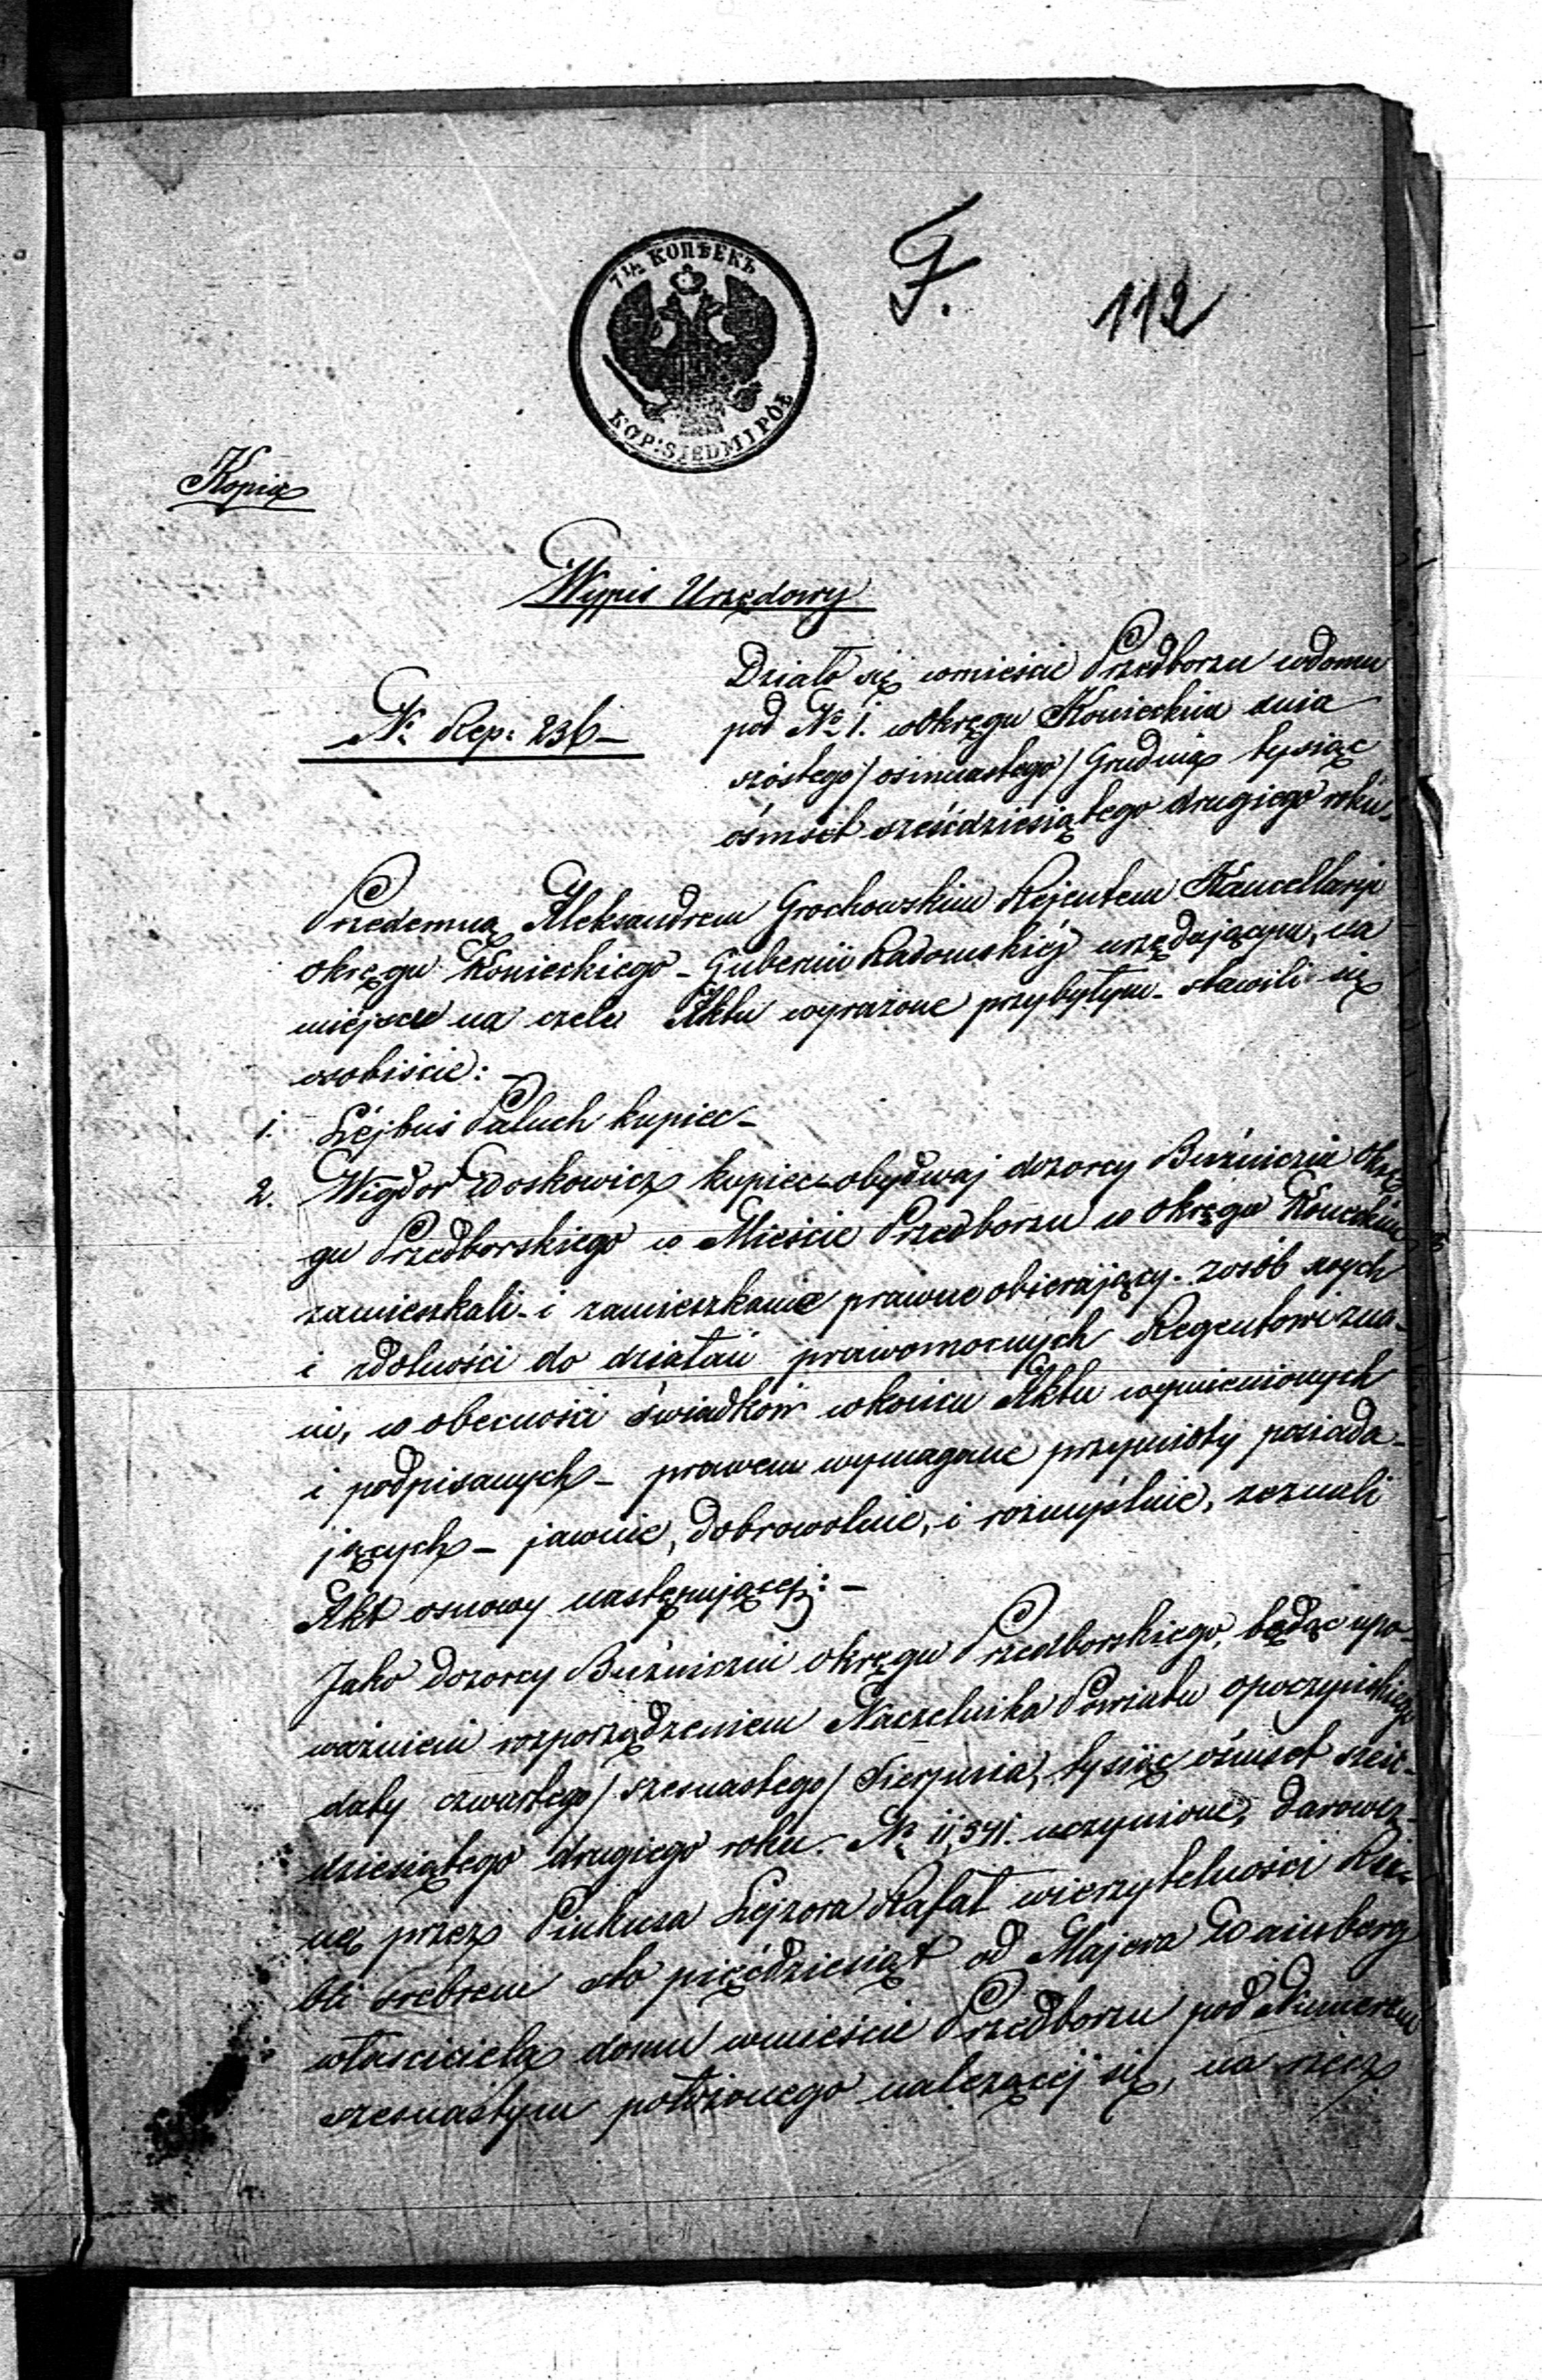 7½ КОПѢЕКЪ
KOP: SIEDMIPÓŁ
F.
112
Kopia
Wypis Urzędowy
Działo się wmieście Przedborzu wdomu
№ Rep: 236 –
pod № 1. wOkręgu Konieckim dnia
szóstego / osimnastego / Grudnia tysiąc
ośmset sześćdziesiątego drugiego roku.
Przedemną Aleksandrem Grochowskim Rejentem Kancellaryi
Okręgu Konieckiego – Gubernii Radomskiéj urzędującym, na
miéjsce na czele Aktu wyrażone przybyłym – stawili się
osobiście: –
1. Léjbuś Paluch kupiec –
2. Wigdor Joskowicz kupiec – obydwaj dozorcy Bużniczni Okrę
gu Przedborskiego w Mieście Przedborzu w Okręgu Koneckim
zamieszkali – i zamieszkanie prawne obierający – zosób swych
i zdolności do działań prawomocnych Regentowi zna–
ni, w obecności świadków wkońcu Aktu wymienionych
i podpisanych – prawem wymagane przymioty posiada–
jących – jawnie, dobrowolnie, i rozmyślnie, zeznali
Akt osnowy następującej: –
Jako dozorcy Bużniczni okręgu Przedborskiego, będąc upo–
ważnieni rozporządzeniem Naczelnika Powiatu opoczyńskiego
daty czwartego / szesnastego / Sierpnia, tysiąc ośmset sześć–
dziesiątego drugiego roku. № 11,541. uczynione, darowiz–
ną przez Pinkusa Lejzora Rafał wierzytelności Ru–
bli srebrem sto pięćdziesiąt od Majera Wainberg
właściciela domu wmieście Przedborzu pod Numerem
szesnastym położonego należącéj się, na rzecz